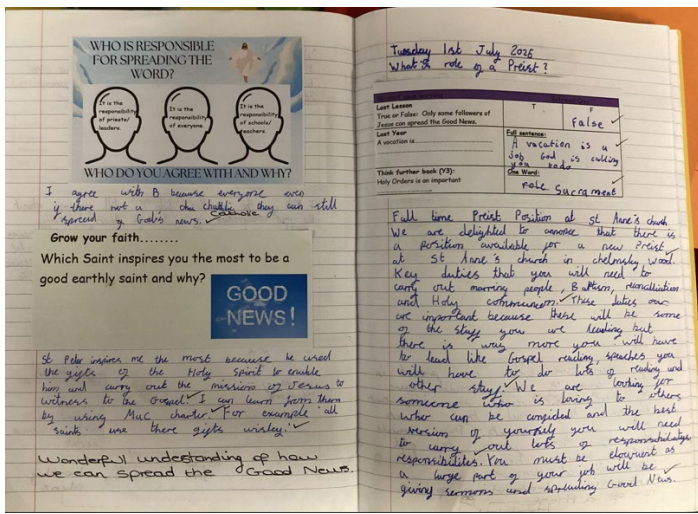 WHO IS RESPONSIBLE
FOR SPREADING THE
WORD?
It is the
responsibility
of priests/
leaders.
It is the
responsibility
of everyone.
It is the
responsibility
of schools/
teachers
WHO DO YOU AGREE WITH AND WHY?
I agree with B because everyone even
if there not a chatholic they can still
Catholic
spread God's news.
Grow your faith........
Which Saint inspires you the most to be a
good earthly saint and why?
GOOD
NEWS!
St Peter inspires me the most because he used
the gifts of the Holy Spirit to enable
him and carry out the mission of Jesus to
witness to the Gospel I can learn from them
by using MAC charter. For example 'all
saints use there gifts wisley.'
Wonderful understanding of how
we can spread the Good News.
Tuesday 1st July 2025
What's role of a Preist?
Last Lesson
True or False: Only some followers of
Jesus can spread the Good News.
T
F
False
Last Year
A vocation is
Full sentence:
A vacation is a
job God is calling
you
Think further back (Y3):
Holy Orders is an important
One Word:
role Sacrament
Full time Preist Position at St Anne's church
We are delighted to annonce that there is
a position available for a new Preist
at St Anne's church in chelmsley wood.
Key duties that you will need to
carry out marring people, Baptism, reconcilliation
and Holy communion. These duties our
are important because these will be some
of the stuff you are leading but
there is way more you will have
to lead like Gospel reading, speaches you
will have to do lots of reading and
other stuff. We are looking for
someone who is loving to others
who can be confided and the best
version of yourself you will need
to carry out lots of responsibilatys
responsibilites. You must be elowent as
a large part of your job will be
giving sermons and spreading Good News.